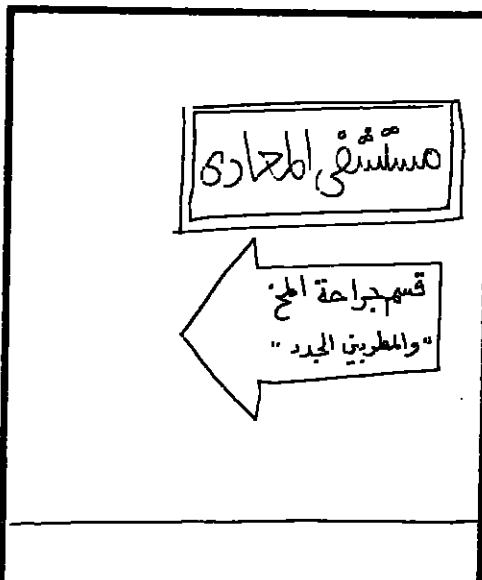 مستشفى المعادى
قسم جراحة المخ
"والمطربين الجدد"